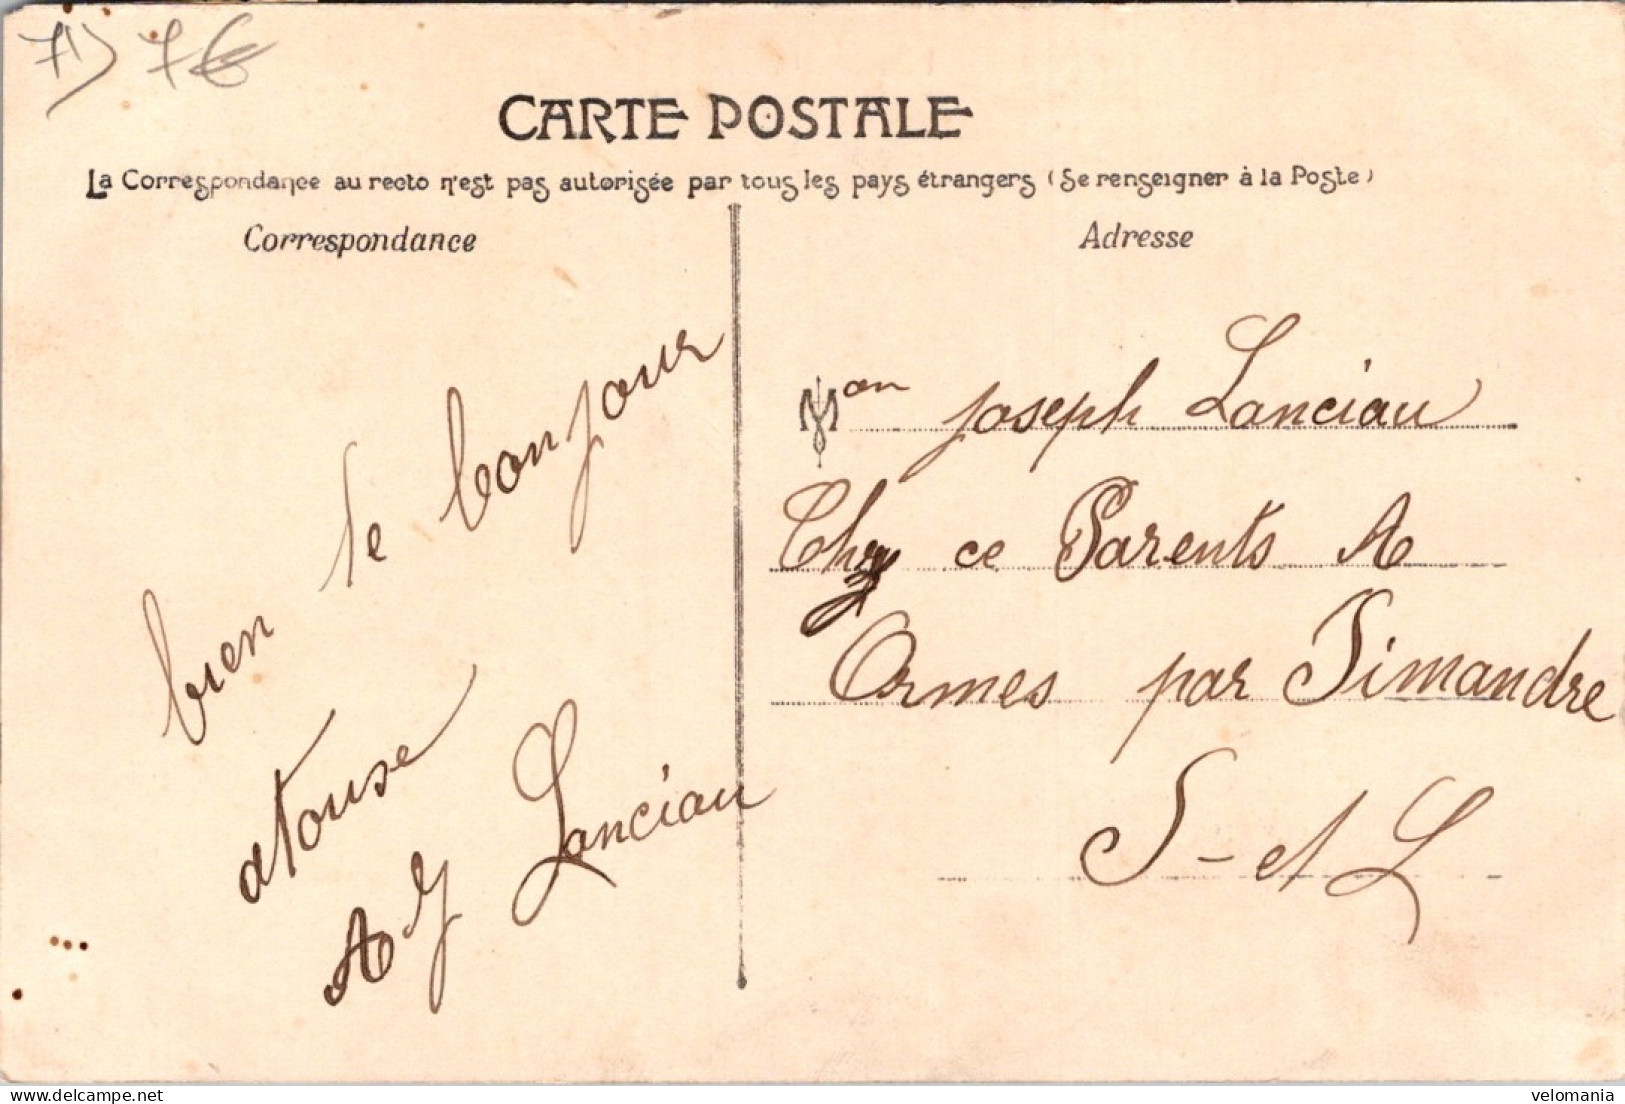 71) 7€
CARTE POSTALE
La Correspondance au recto n'est pas autorisée par tous les pays étrangers (Se renseigner à la Poste)
Correspondance
bien le bonjour
atouse
A J Lanciau
Adresse
Mon Joseph Lanciau
Chez ce Parents A
Ormes par Simandre
S-et L
velomania